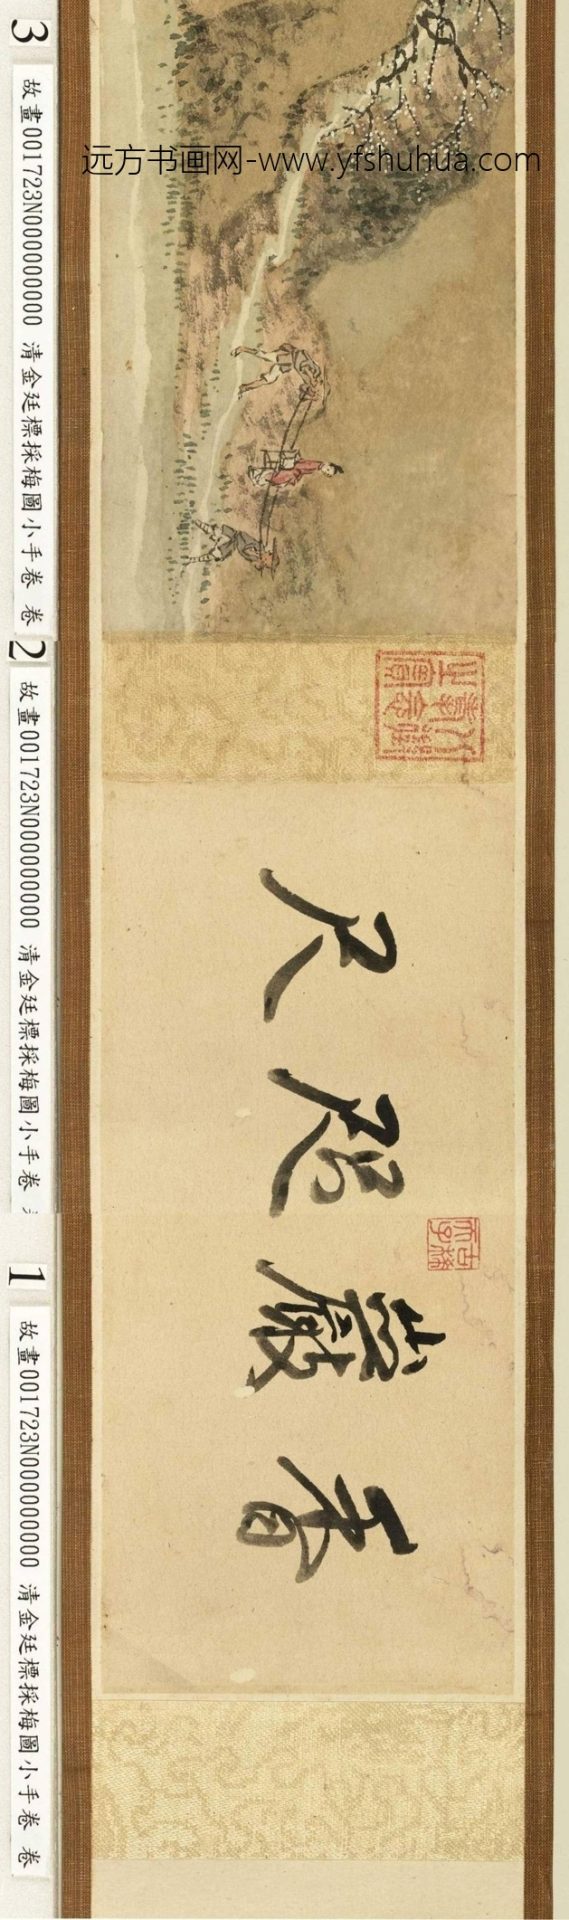 远方书画网-www.yfshuhua.com
3
故畫001723N000000000 清金廷標採梅圖小手卷 卷
2
故畫001723N000000000 清金廷標採梅圖小手卷
1
故畫001723N000000000 清金廷標採梅圖小手卷 卷
香巖咫尺